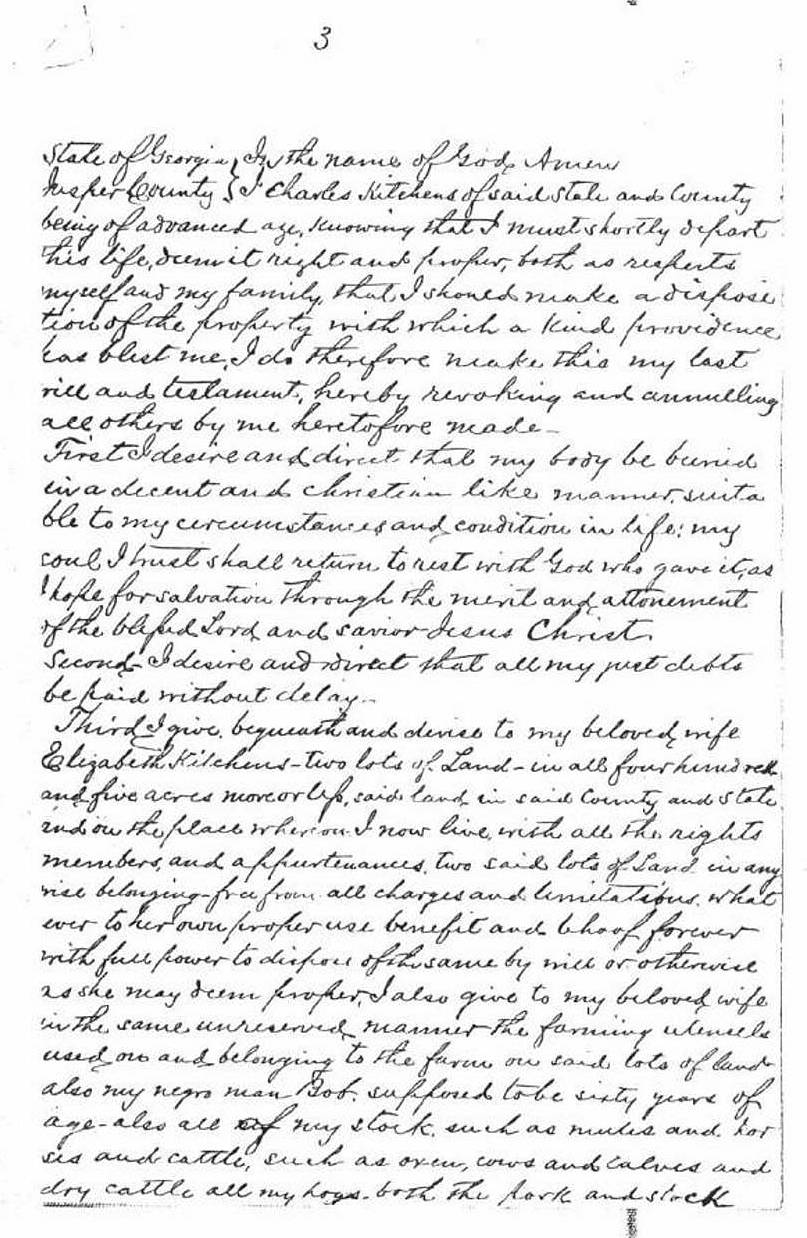 3
State of Georgia { In the name of God, Amen
Jasper County { I Charles Kitchens of said State and County
being of advanced age, knowing that I must shortly depart
this life, deem it right and proper, both as respects
myself and my family, that I should make a disposi
tion of the property with which a kind providence
has blest me, I do therefore make this my last
will and testament, hereby revoking and annulling
all others by me heretofore made -
First I desire and direct that my body be buried
in a decent and christian like manner, suita
ble to my circumstances and condition in life; my
soul I trust shall return to rest with God who gave it, as
I hope for salvation through the merit and attonement
of the blessed Lord and savior Jesus Christ.
Second - I desire and direct that all my just debts
be paid without delay -
Third I give, bequeath and devise to my beloved wife
Elizabeth Kitchens - two lots of Land - in all four hundred
and five acres more or less, said land in said County and State
and on the place whereon I now live, with all the rights
members, and appurtenances, two said lots of Land in any
wise belonging - free from all charges and limitations, what
ever to her own proper use benefit and behoof forever
with full power to dispose of the same by will or otherwise
as she may deem proper, I also give to my beloved wife
in the same unreserved manner the farming utensils
used on and belonging to the farm on said lots of land
also my negro man Bob. supposed to be sixty years of
age - also all of my stock, such as mules and hor
ses and cattle, such as oxen, cows and calves and
dry cattle all my hogs - both the pork and stock